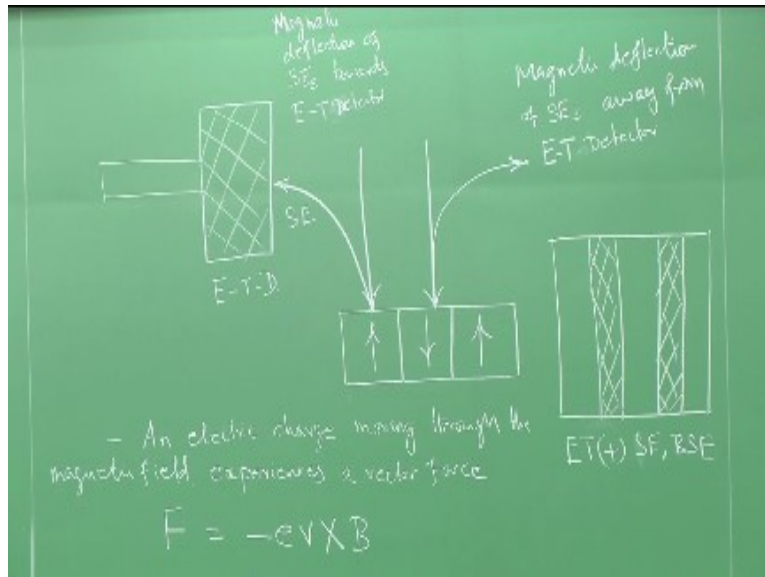 Magnetic
deflection of
SEs towards
E-T-Detector
Magnetic deflection
of SEs away from
E-T-Detector
SE
E-T-D
ET(+) SE, BSE
- An electric charge moving through the
magnetic field experiences a vector force
F = -eV X B